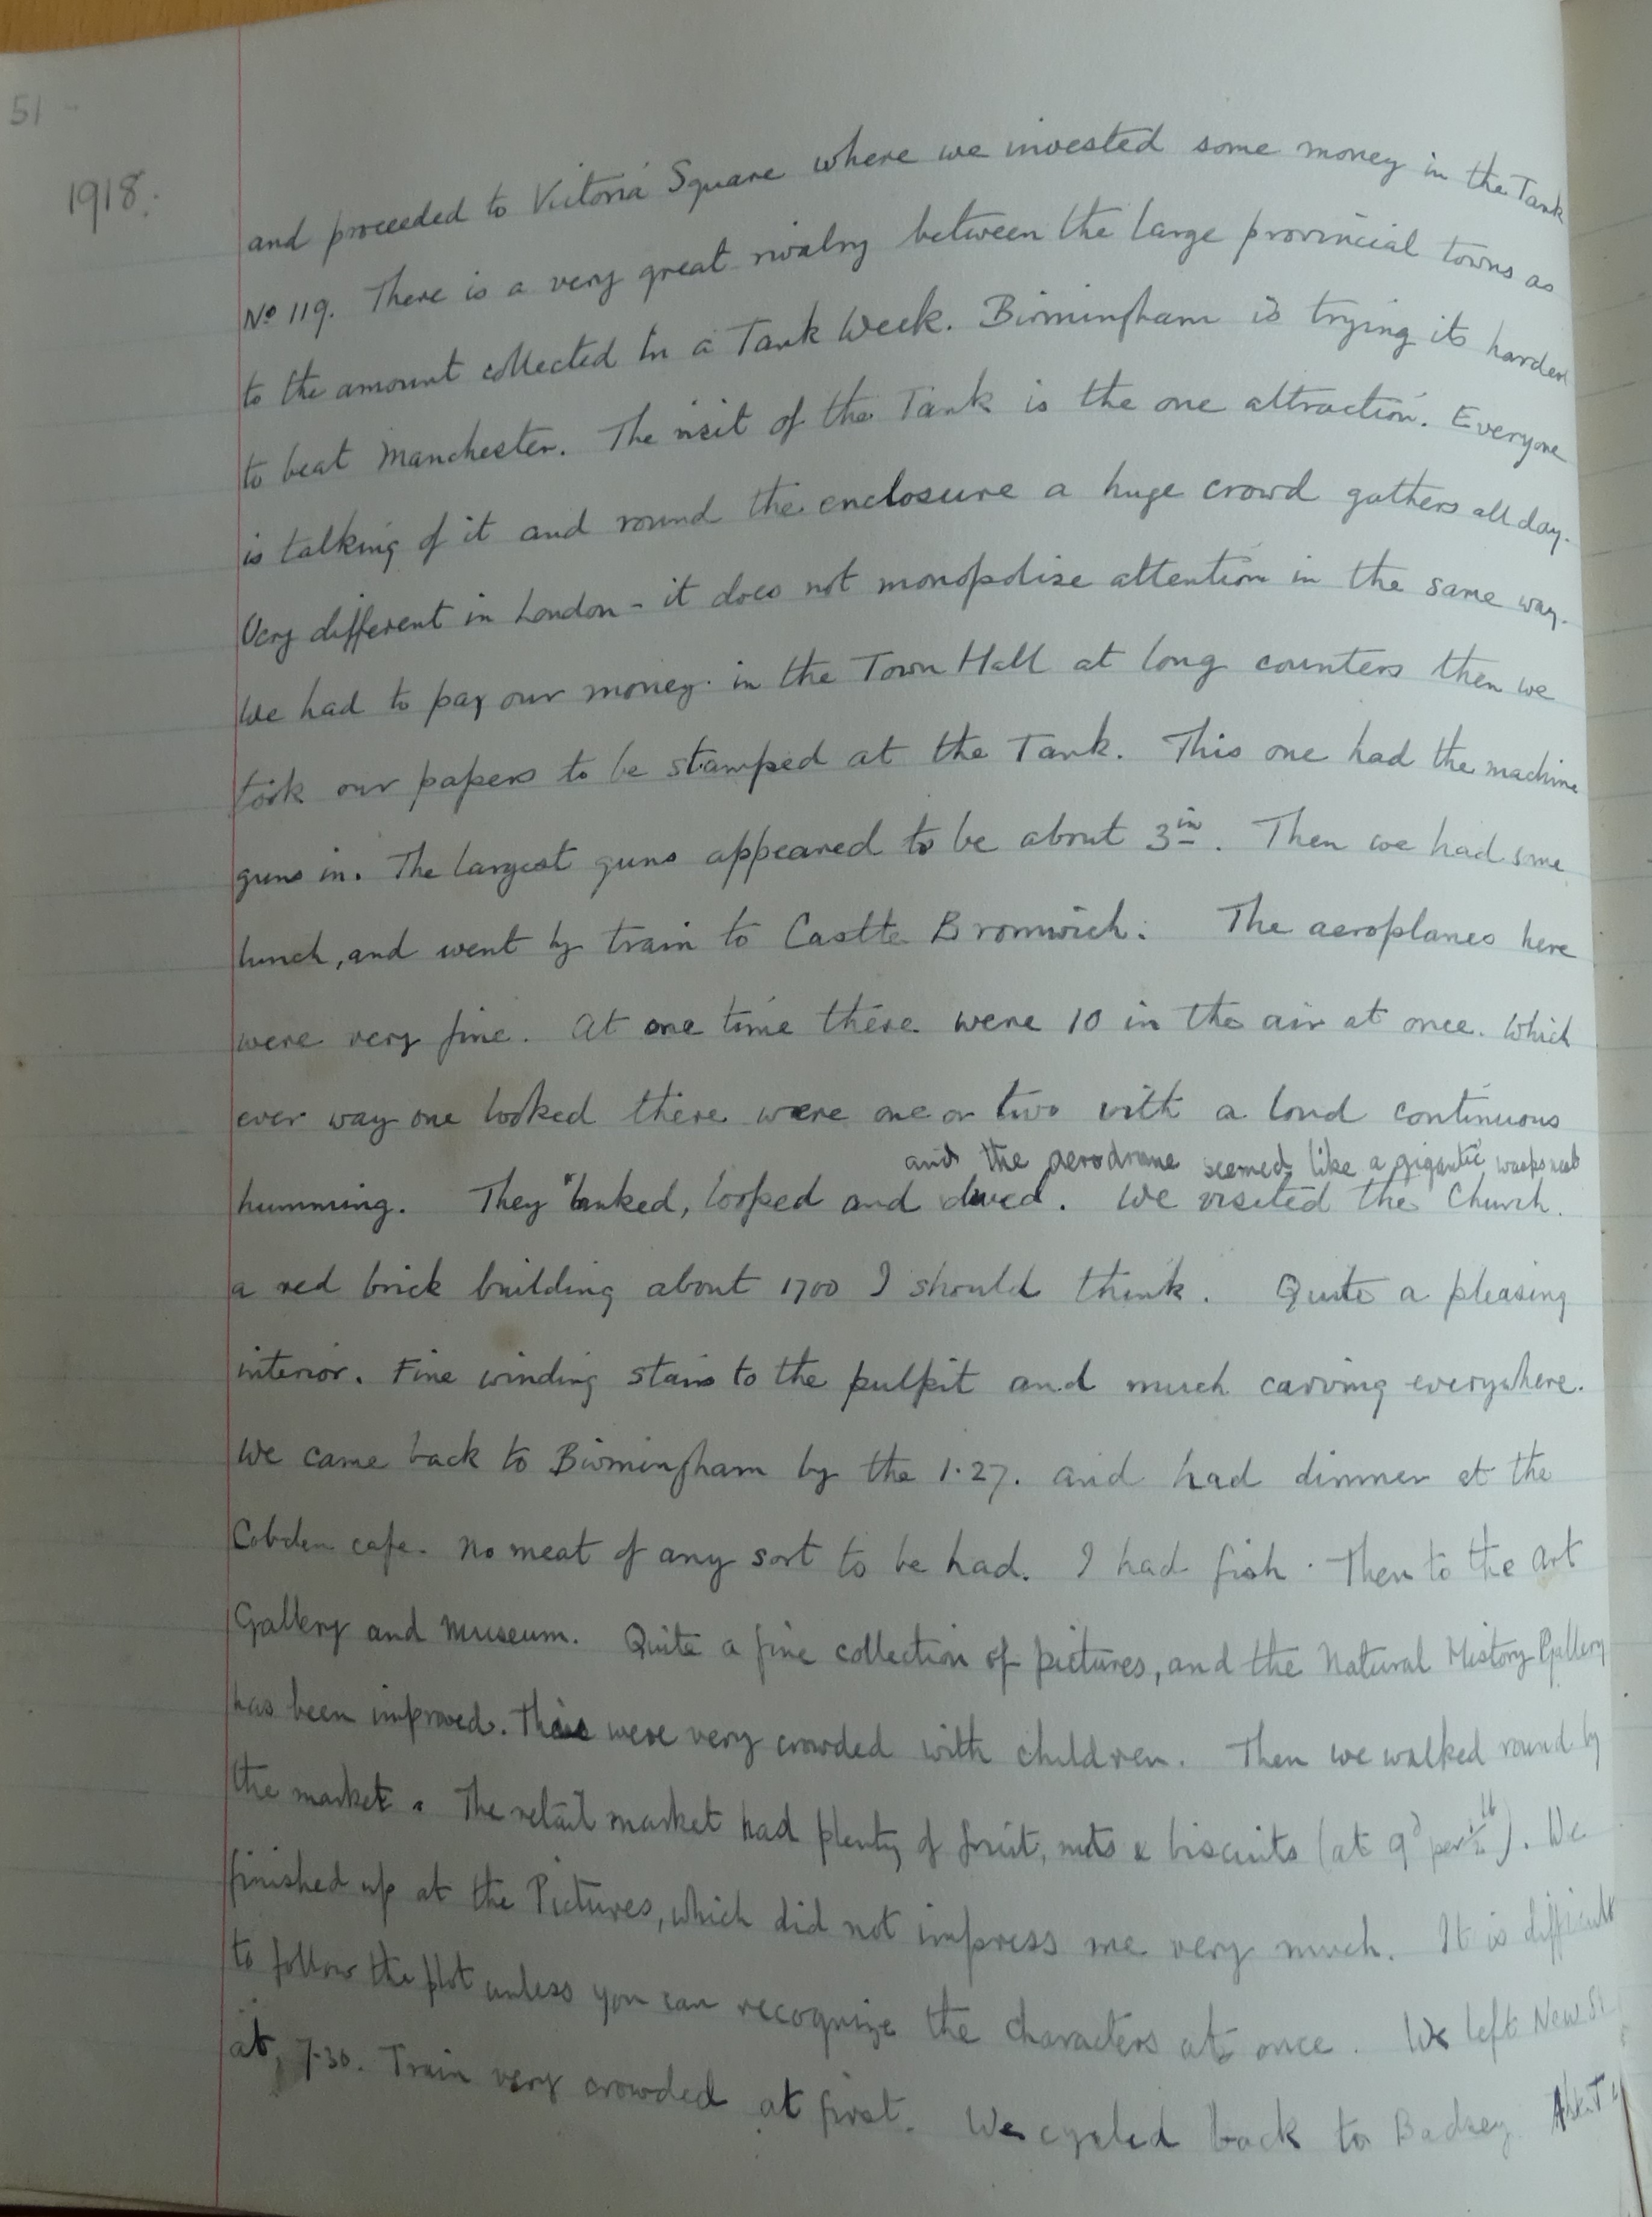 51 -
1918.
and proceeded to Victoria Square where we invested some money in the Tank
No 119. There is a very great rivalry between the large provincial towns as
to the amount collected in a Tank Week. Birmingham is trying its hardest
to beat Manchester. The visit of the Tank is the one attraction. Everyone
is talking of it and round the enclosure a huge crowd gathers all day.
Very different in London - it does not monopolise attention in the same way.
We had to pay our money in the Town Hall at long counters then we
took our papers to be stamped at the Tank. This one had the machine
guns in. The largest guns appeared to be about 3in. Then we had some
lunch, and went by train to Castle Bromwich. The aeroplanes here
were very fine. At one time there were 10 in the air at once. Which
ever way one looked there were one or two with a loud continuous
and the aerodrome seemed like a gigantic wasps nest
humming. They banked, looped and dived. We visited the Church.
a red brick building about 1700 I should think. Quite a pleasing
interior. Fine winding stairs to the pulpit and much carving everywhere.
We came back to Birmingham by the 1.27. and had dinner at the
Cobden cafe. No meat of any sort to be had. I had fish. Then to the Art
Gallery and Museum. Quite a fine collection of pictures, and the Natural History Gallery
has been improved. These were very crowded with children. Then we walked round by
the market. The retail market had plenty of fruit, nuts & biscuits (at 9d per ½ lb). We
finished up at the Pictures, which did not impress me very much. It is difficult
to follow the plot unless you can recognize the characters at once. We left New St
at 7-30. Train very crowded at first. We cycled back to Badsey